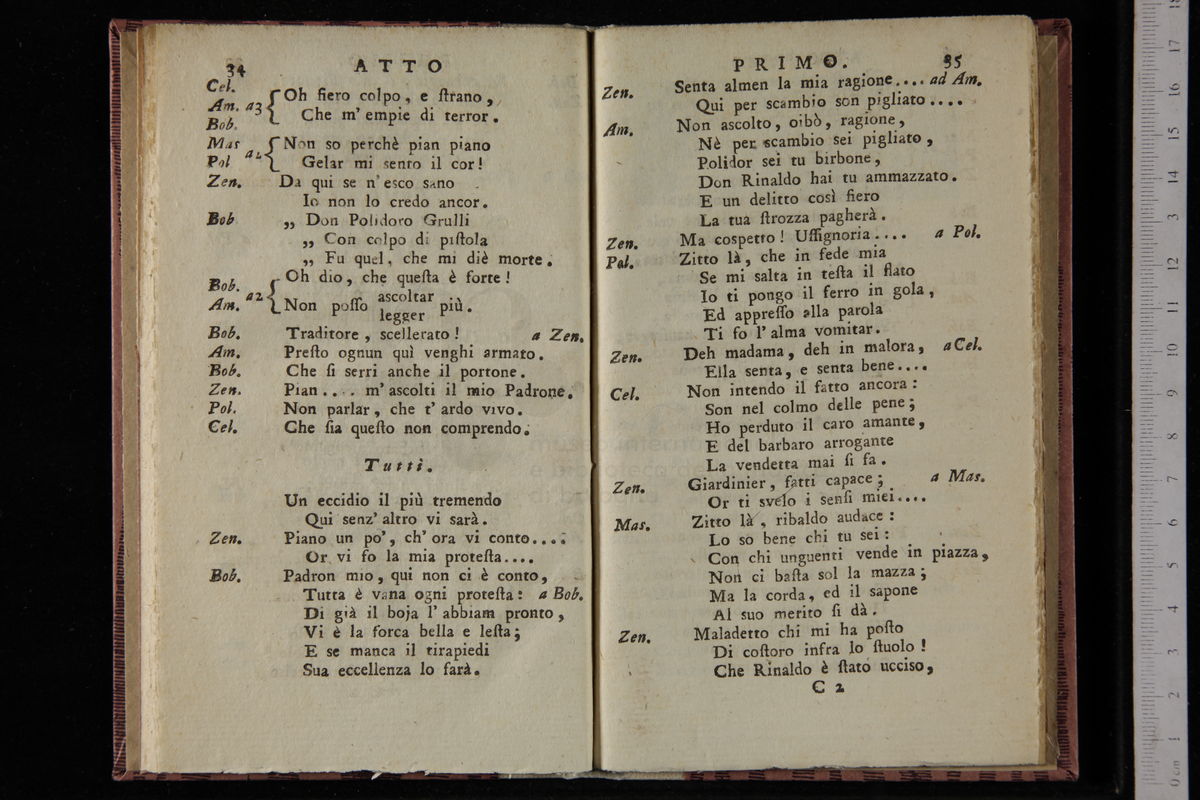 34 ATTO
Cel.
Am. a3 Oh fiero colpo, e ſtrano,
Bob. Che m' empie di terror.
Mas Non so perchè pian piano
Pol a2 Gelar mi sento il cor!
Zen. Da qui se n' esco sano
Io non lo credo ancor.
Bob „ Don Polidoro Grulli
„ Con colpo di piſtola
„ Fu quel, che mi diè morte.
Bob. Oh dio, che queſta è forte!
Am. a2 Non poſſo ascoltar più.
legger
Bob. Traditore, scellerato! a Zen.
Am. Preſto ognun quì venghi armato.
Bob. Che ſi serri anche il portone.
Zen. Pian.... m' ascolti il mio Padrone.
Pol. Non parlar, che t' ardo vivo.
Cel. Che ſia queſto non comprendo.
Tutti.
Un eccidio il più tremendo
Qui senz' altro vi sarà.
Zen. Piano un po', ch' ora vi conto....
Or vi fo la mia proteſta....
Bob. Padron mio, qui non ci è conto,
Tutta è vana ogni proteſta: a Bob.
Di già il boja l' abbiam pronto,
Vi è la forca bella e leſta;
E se manca il tirapiedi
Sua eccellenza lo farà.
PRIMO. 35
Zen. Senta almen la mia ragione.... ad Am.
Qui per scambio son pigliato....
Am. Non ascolto, oibò, ragione,
Nè per scambio sei pigliato,
Polidor sei tu birbone,
Don Rinaldo hai tu ammazzato.
E un delitto così fiero
La tua ſtrozza pagherà.
Zen. Ma cospetto! Uſſignoria.... a Pol.
Pol. Zitto là, che in fede mia
Se mi salta in teſta il flato
Io ti pongo il ferro in gola,
Ed appreſſo alla parola
Ti fo l' alma vomitar.
Zen. Deh madama, deh in malora, a Cel.
Ella senta, e senta bene....
Cel. Non intendo il fatto ancora:
Son nel colmo delle pene;
Ho perduto il caro amante,
E del barbaro arrogante
La vendetta mai ſi fa.
Zen. Giardinier, fatti capace; a Mas.
Or ti svelo i senſi miei....
Mas. Zitto là, ribaldo audace:
Lo so bene chi tu sei:
Con chi unguenti vende in piazza,
Non ci baſta sol la mazza;
Ma la corda, ed il sapone
Al suo merito ſi dà.
Zen. Maladetto chi mi ha poſto
Di coſtoro infra lo ſtuolo!
Che Rinaldo è ſtato ucciso,
C 2